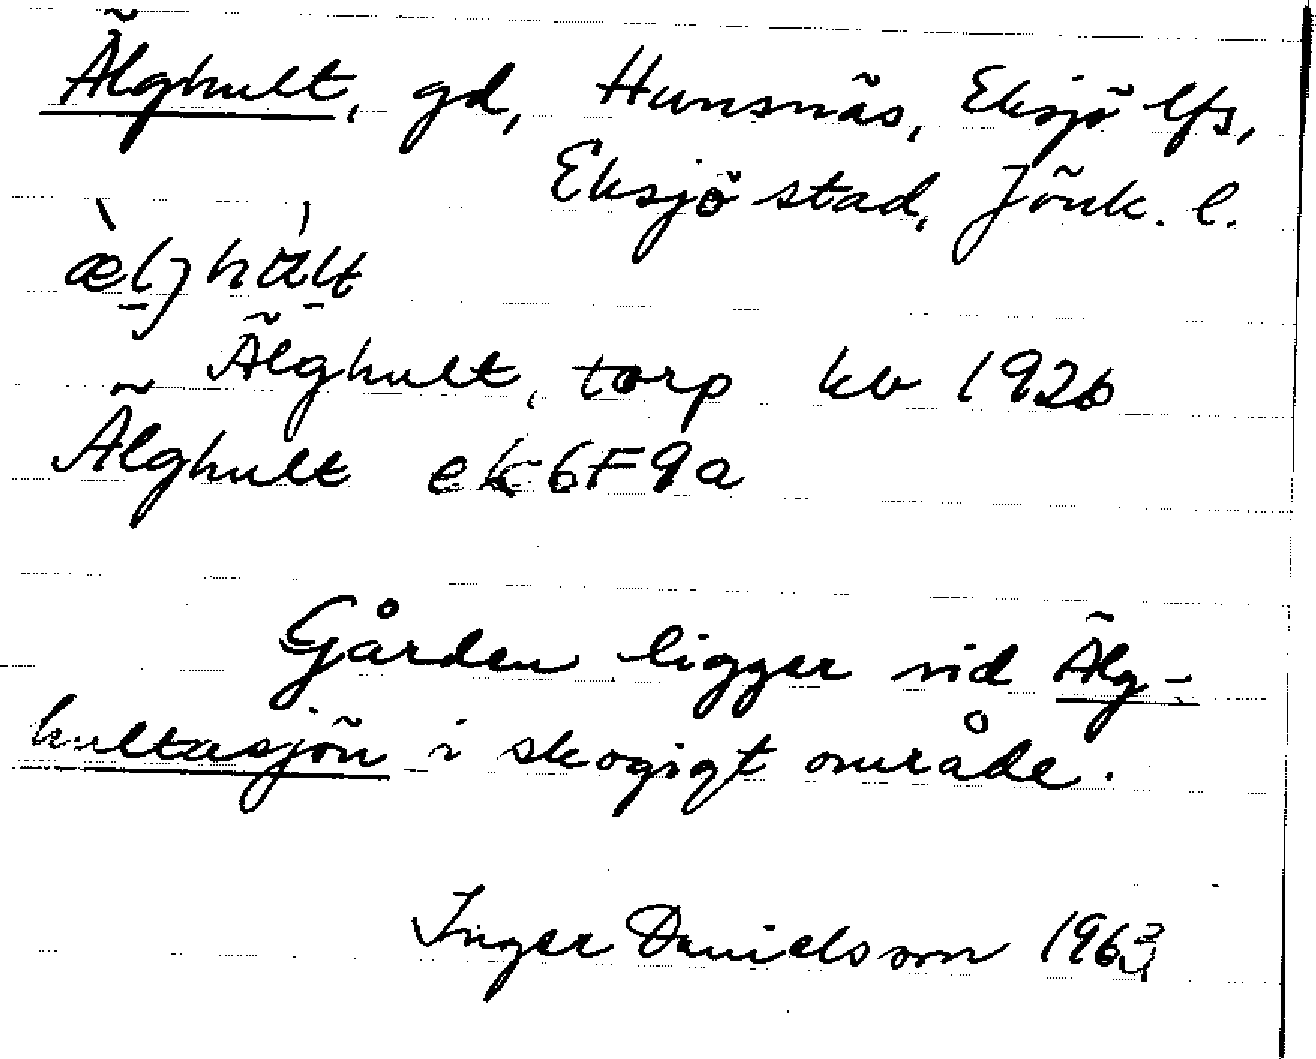 Älghult, gd, Hunsnäs, Eksjö lfs,
Eksjö stad, Jönk. l.
Älghult, torp kb 1926
Älghult ek 6F9a
Gården ligger vid Älg-
hultasjön i skogigt område.
Inger Danielsson 1963